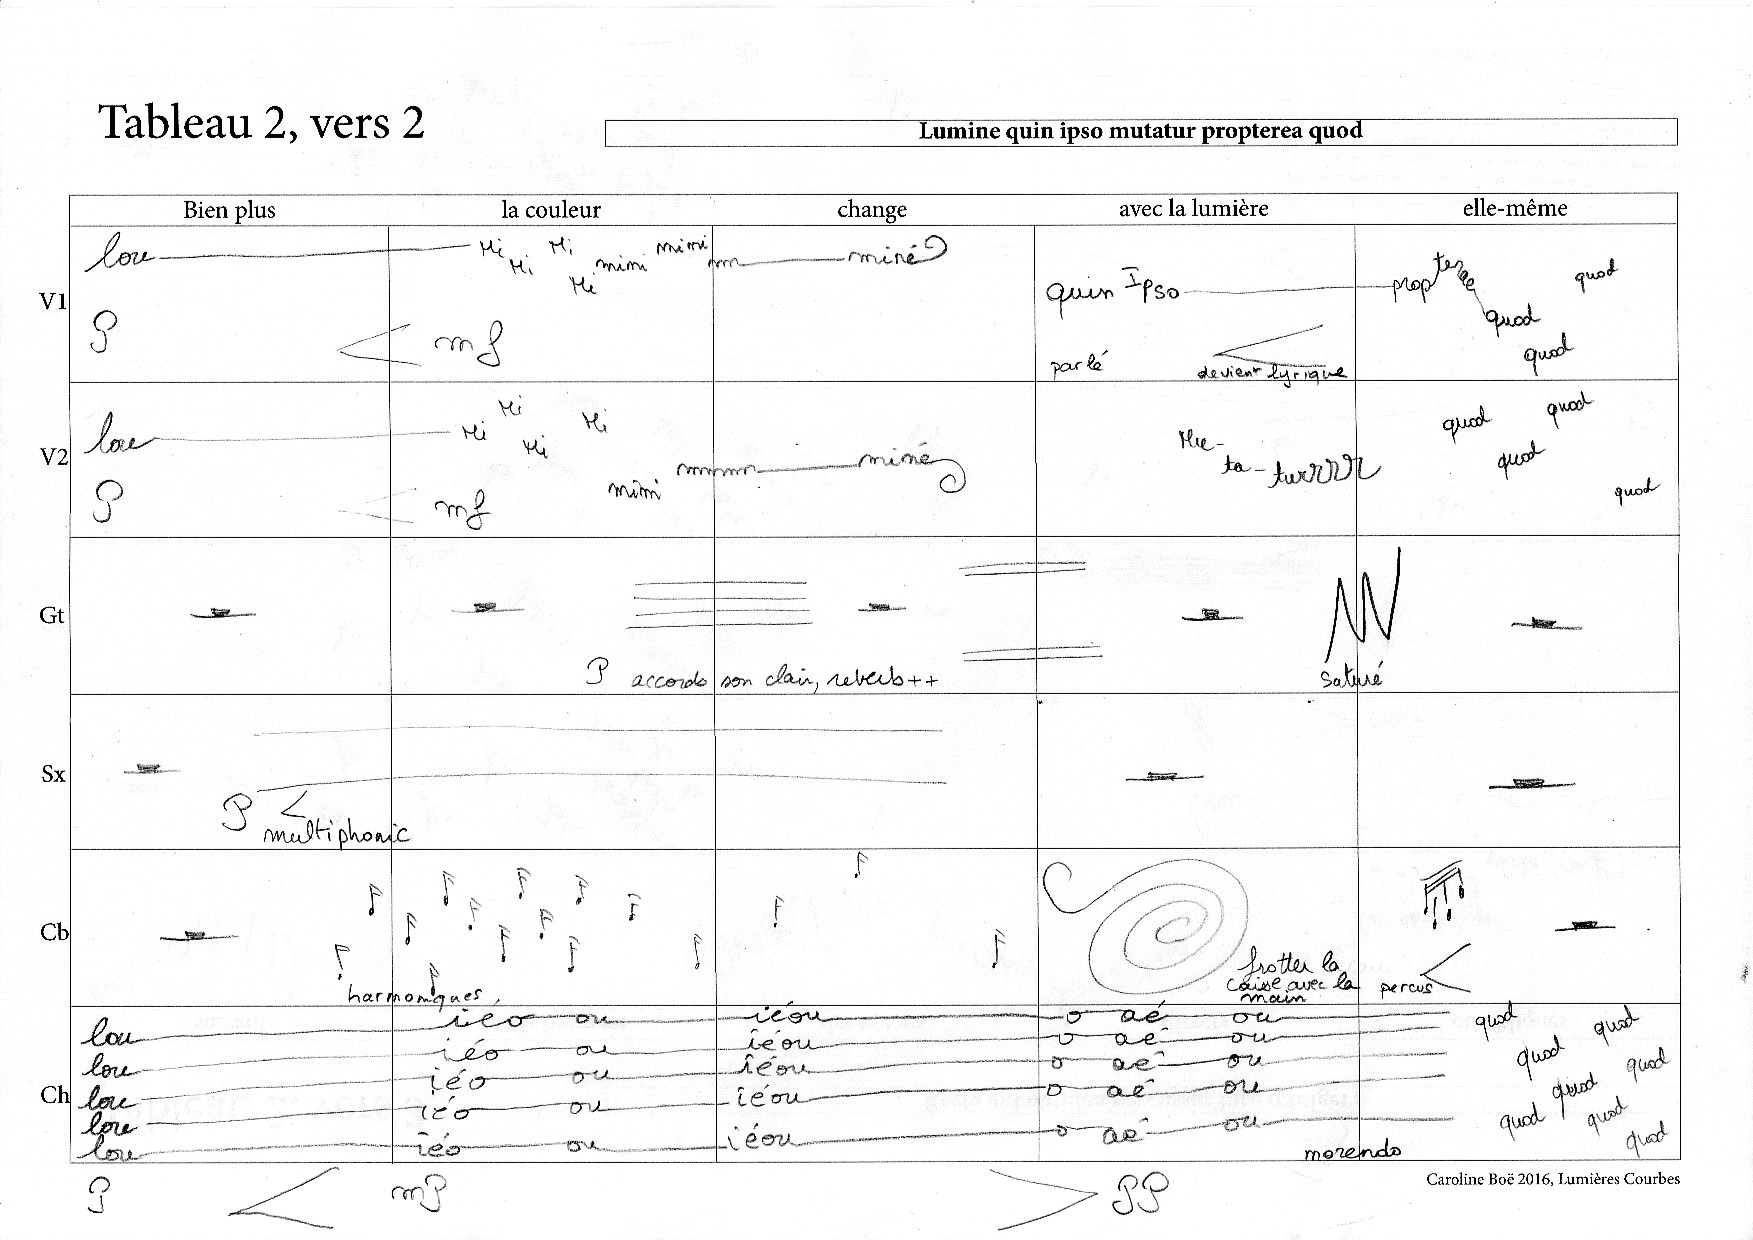 Tableau 2, vers 2
Lumine quin ipso mutatur propterea quod
Bien plus la couleur change avec la lumière elle-même
V1
lou Mi Mi Mi Mi mimi mimi mm miné
quin Ipso propterea quod quod quod
P mf
parlé devient lyrique
V2
lou Mi Mi Mi Mi mimi mmmm miné
Mu- ta- turrrrr quod quod quod quod
P mf
Gt
P accords son clair, reverb++
Saturé
Sx
P
multiphonic
Cb
harmoniques
frotter la
caisse avec la
main
percus
Ch
lou iéo ou iéou o aé ou quod quod
lou iéo ou iéou o aé ou quod quod
lou iéo ou iéou o aé ou quod
lou iéo ou iéou o aé ou quod quod
lou iéo ou iéou o aé ou quod
morendo
P mP PP
Caroline Boë 2016, Lumières Courbes